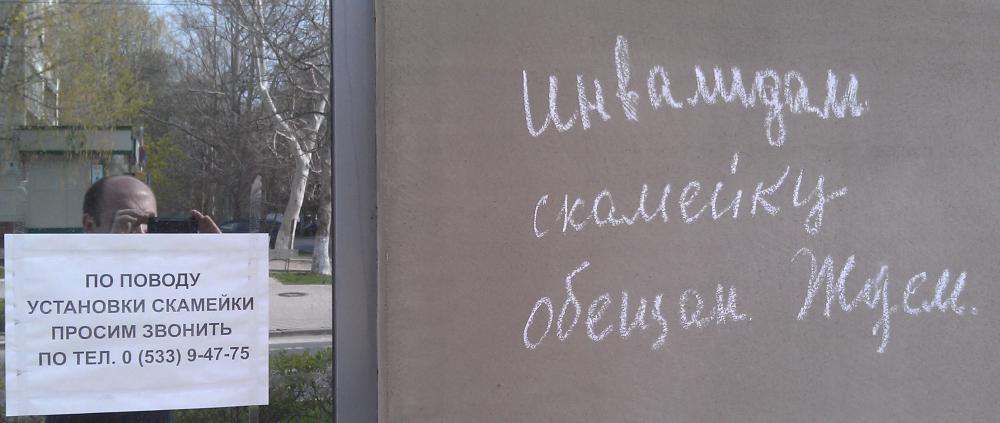 ПО ПОВОДУ
УСТАНОВКИ СКАМЕЙКИ
ПРОСИМ ЗВОНИТЬ
ПО ТЕЛ. 0 (533) 9-47-75
Инвалидам
скамейку
обещали. Ждем.